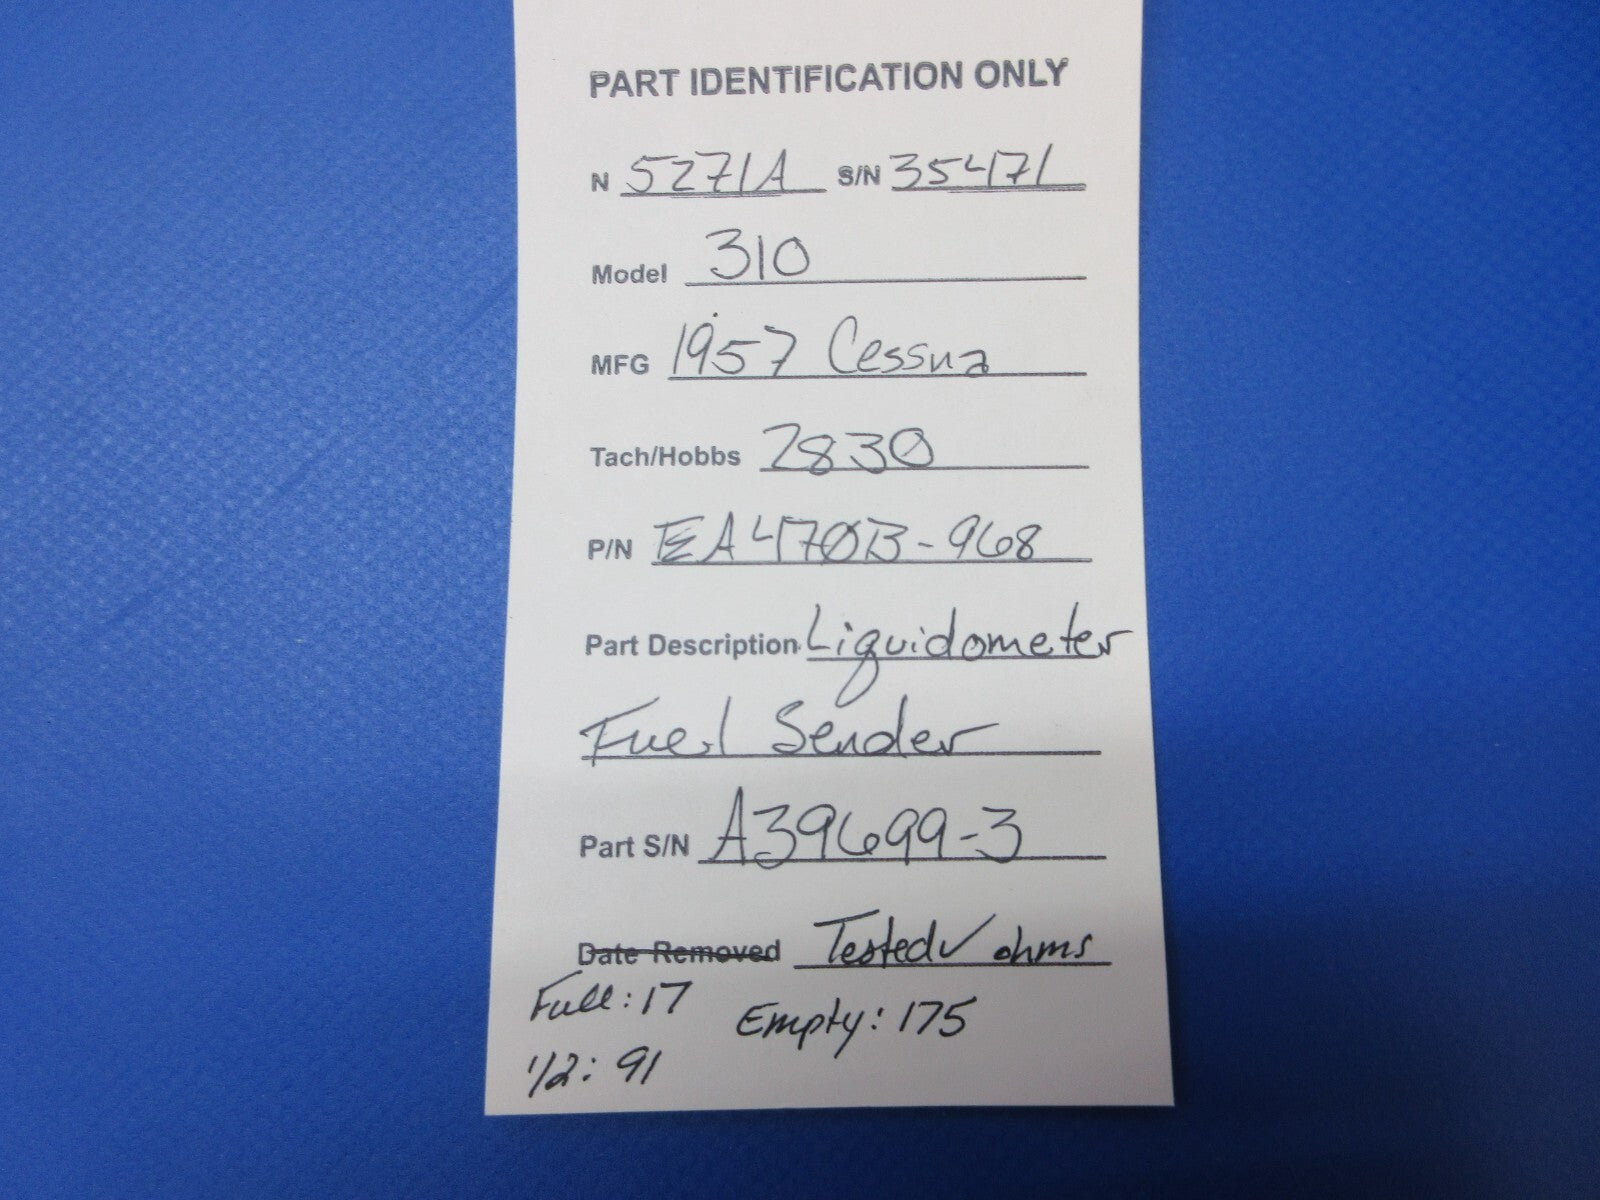 PART IDENTIFICATION ONLY
N 5271A S/N 35471
Model 310
MFG 1957 Cessna
Tach/Hobbs 2830
P/N EA470B-968
Part Description Liquidometer
Fuel Sender
Part S/N A39699-3
Date Removed Tested✓ ohms
Full: 17 Empty: 175
1/2: 91